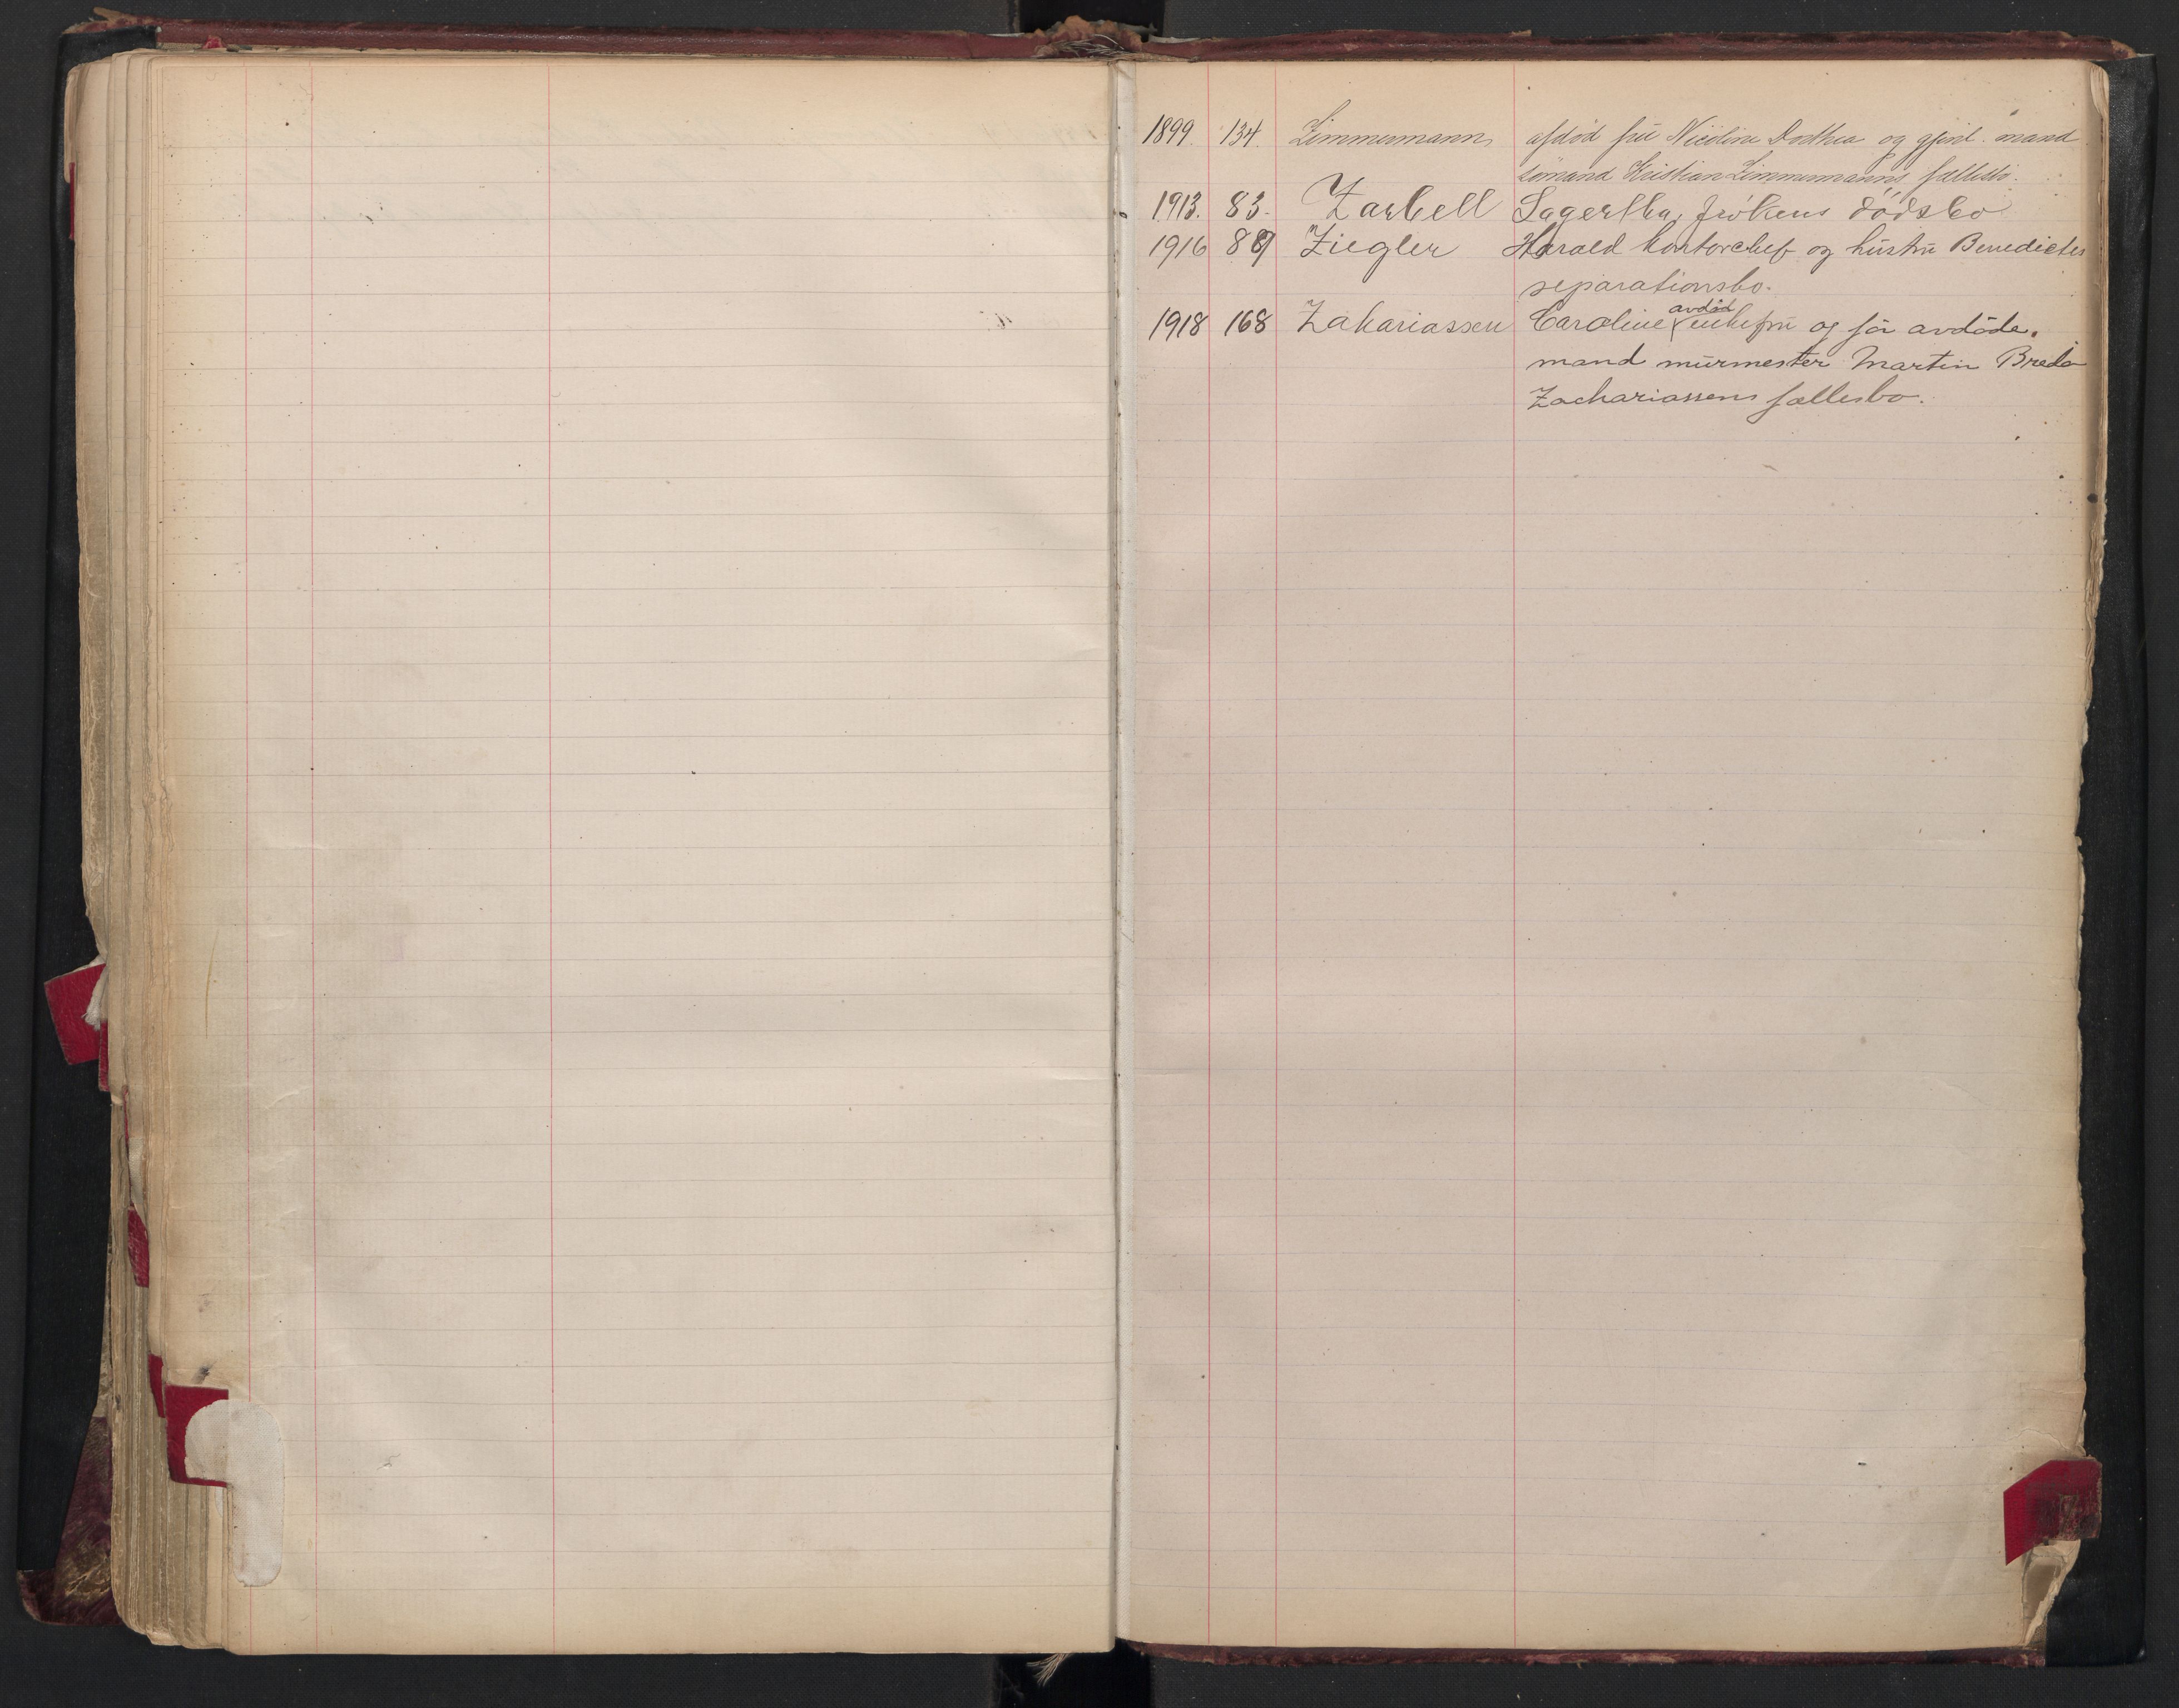 1899. 134. Zimmermann, afdød frü Nicoline Dorthea og gjenl. mand
sømand Kristian Zimmermanns fællesbo.
1913. 83. Zarbell Lagertha, frökens dödsbo
1916 89 Ziegler Harald kontorchef og hüstrü Benedictes
separationsbo.
avdöd
1918 168 Zakariassen Caroline enkefrü og för avdöde
mand mürmester Martin Breda
Zachariassens fællesbo.